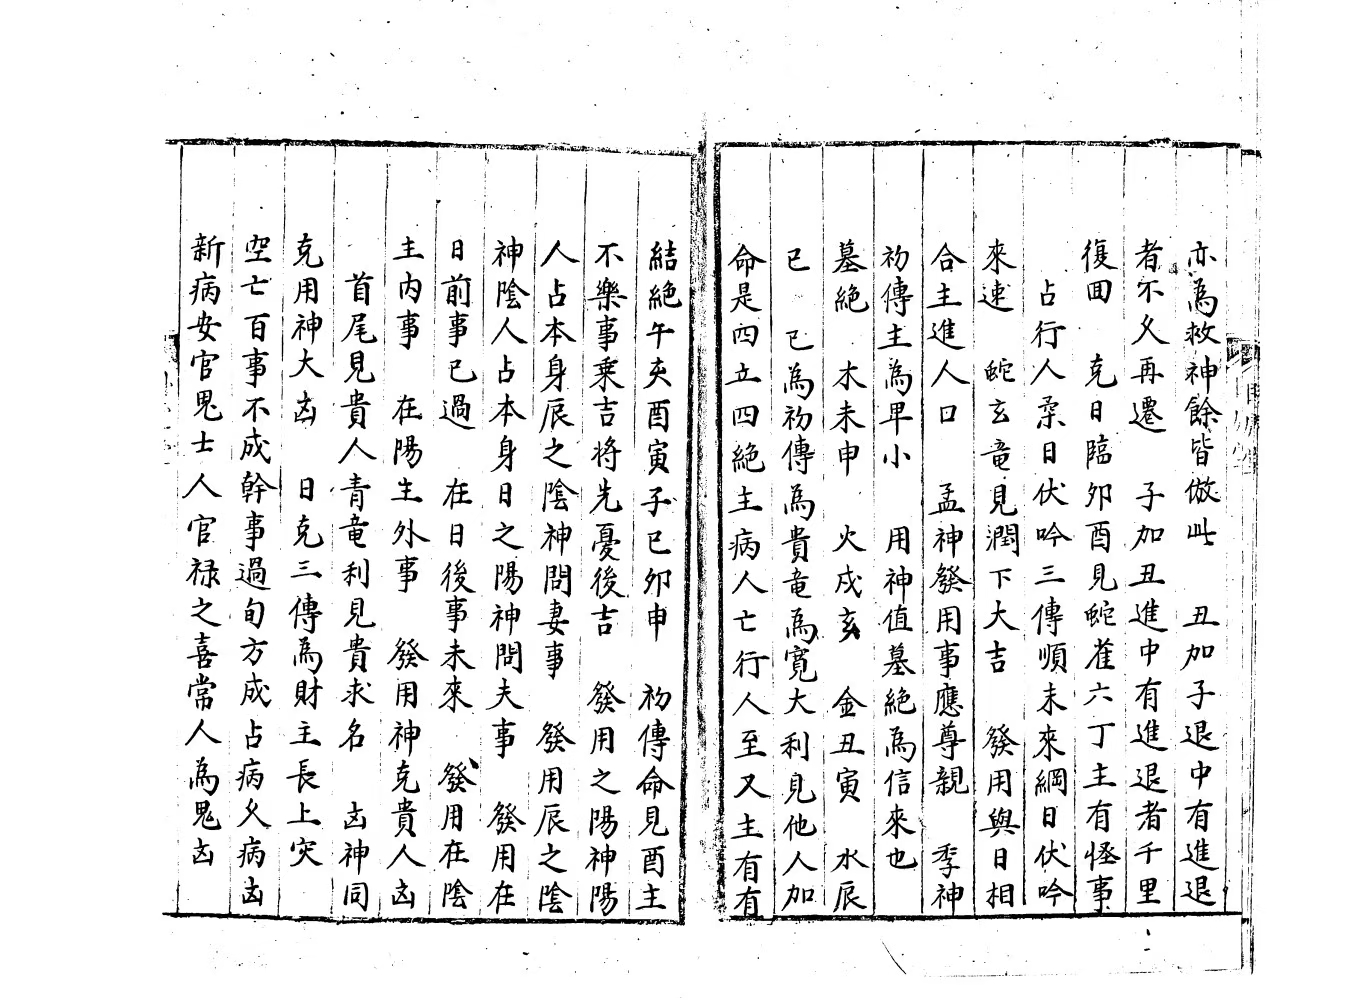 亦為救神餘皆倣此　丑加子退中有進退
者不久再遷　子加丑進中有進退者千里
復囬　克日臨夘酉見蛇雀六丁主有怪事
占行人柔日伏吟三傳順未來綱日伏吟
來速　蛇玄竜見潤下大吉　發用與日相
合主進人口　孟神發用事應尊親　季神
初傳主為早小　用神值墓絕為信來也
墓絕　木未申　火戌亥　金丑寅　水辰
巳　已為初傳為貴竜為寬大利見他人加
命是四立四絕主病人亡行人至又主有有
結絕午亥酉寅子巳夘申　初傳命見酉主
不樂事乗吉将先憂後吉　發用之陽神陽
人占本身辰之陰神問妻事　發用辰之陰
神陰人占本身日之陽神問夫事　發用在
日前事已過　在日後事未來　發用在陰
主内事　在陽生外事　發用神克貴人凶
首尾見貴人青竜利見貴求名　凶神同
克用神大凶　日克三傳為財主長上灾
空亡百事不成幹事過旬方成占病久病凶
新病安官鬼士人官禄之喜常人為鬼凶